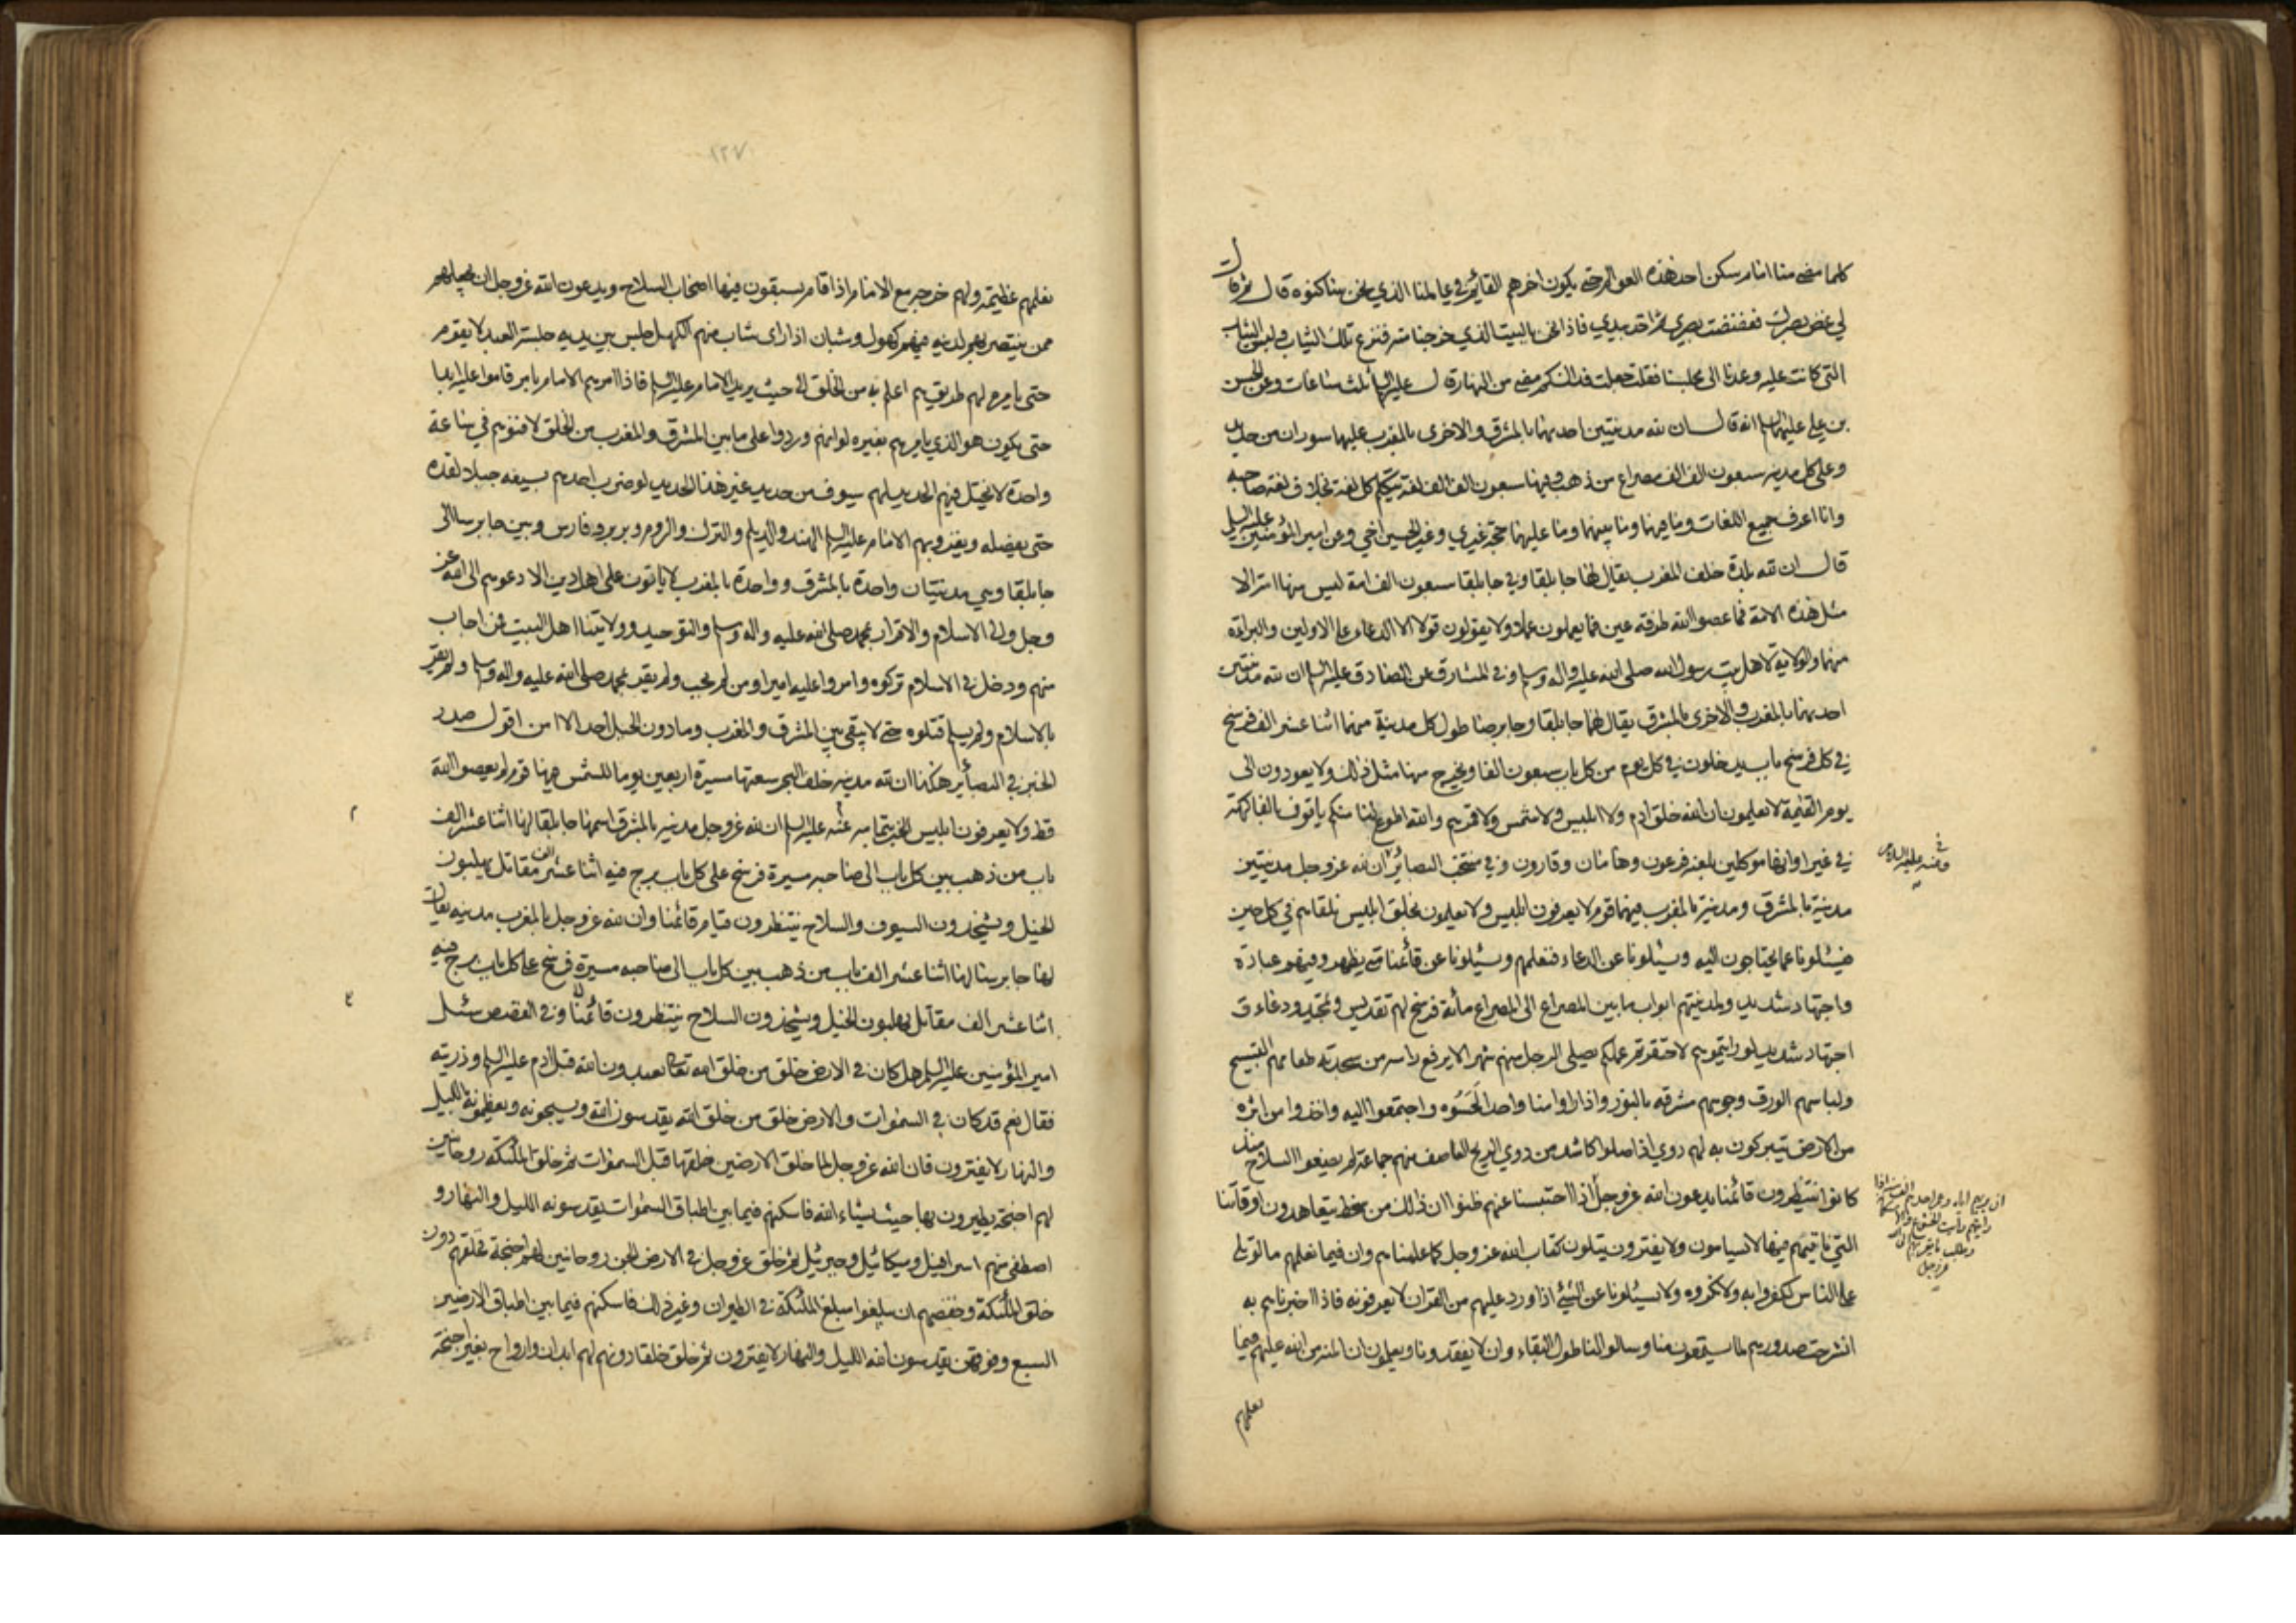 كلما مضى منا امام سكن احد هذه العوالم حتى يكون اخرهم القائم في عالمنا الذي نحن ساكنوه قال ثم قال
لي غض بصرك فغضضت بصري ثم اخذ بيدي فاذا نحن بالبيت الذي خرجنا منه فنزع تلك الثياب ولبس الثياب
التي كانت عليه وعدنا الى مجلسنا فقلت جعلت فداك كم مضى من النهار قال عليه السلم ثلث ساعات وعن الحسن
بن علي عليهما السلم انه قال ان لله مدينتين احديهما بالمشرق والاخرى بالمغرب عليهما سوران من حديد
وعلى كل مدينه سبعون الف الف مصراع من ذهب وفيها سبعون الف الف لغة يتكلم كل لغة بخلاف لغة صاحبه
وانا اعرف جميع اللغات وما فيهما وما بينهما وما عليهما حجة غيري وغير الحسين اخي وعن امير المؤمنين عليه السلم
قال ان لله بلدة خلف المغرب يقال لها جابلقا وفي جابلقا سبعون الف امة ليس منها امة الا
مثل هذه الامة فما عصوا الله طرفة عين فما يعملون عملا ولا يقولون قولا الا الدعاء على الاولين والبراءة
منهما والولاية لاهل بيت رسول الله صلى الله عليه واله وسلم وفي المشارق عن الصادق عليه السلم ان لله مدينتين
احديهما بالمغرب والاخرى بالمشرق يقال لهما جابلقا وجابرصا طول كل مدينة منهما اثنا عشر الف فرسخ
في كل فرسخ باب يدخلون في كل يوم من كل باب سبعون الفا ويخرج منها مثل ذلك ولا يعودون الى
يوم القيمة لا يعلمون ان الله خلق ادم ولا ابليس ولا شمس ولا قمر هم والله اطوع لنا منكم ياتونا بالفاكهة
في غير اوانها موكلين بلعنة فرعون وهامان وقارون وفي منتخب البصائر ان لله عز وجل مدينتين
مدينة بالمشرق ومدينة بالمغرب فيهما قوم لا يعرفون ابليس ولا يعلمون بخلق ابليس نلقاهم في كل حين
فيسئلونا عما يحتاجون اليه ويسئلونا عن الدعاء فنعلمهم ويسئلونا عن قائمنا متى يظهر وفيهم عبادة
واجتهاد شديد ولمدينتهم ابواب ما بين المصراع الى المصراع مائة فرسخ لهم تقديس وتمجيد ودعاء و
اجتهاد شديد لو رايتموهم لاحتقرتم عملكم يصلي الرجل منهم شهرا لا يرفع راسه من سجدته طعامهم التسبيح
ولباسهم الورق وجوههم مشرقه بالنور واذا راوا منا واحدا لحسوه واجتمعوا اليه واخذوا من اثره
من الارض يتبركون به لهم دوي اذا صلوا كاشد من دوي الريح العاصف منهم جماعة لم يضعوا السلاح منذ
كانوا ينتظرون قائمنا يدعون الله عز وجل اذا احتبسنا عنهم ظنوا ان ذلك من سخط يتعاهدون اوقاتنا
التي ناتيهم فيها لا يسامون ولا يفترون يتلون كتاب الله عز وجل كما علمناهم وان فيما نعلمهم ما لو تلي
على الناس لكفروا به ولانكروه ولا يسئلونا عن الشيء اذا ورد عليهم من القران لا يعرفونه فاذا اخبرناهم به
انشرحت صدورهم لما يستمعون منا وسالوا لنا طول البقاء وان لا يفقدونا ويعلمون ان المنة من الله عليهم فيما
نعلمهم
وعنه عليه السلام
١٢٧
نعلمهم عظيمة ولهم خرجة مع الامام اذا قام يسبقون فيها اصحاب السلاح ويدعون الله عز وجل ان يجعلهم
ممن ينتصر بهم لدينه فيهم كهول وشبان اذا راى شاب منهم الكهل جلس بين يديه جلسة العبد لا يقوم
حتى يامره لهم طريق هم اعلم به من الخلق الى حيث يريد الامام عليه السلم فاذا امرهم الامام بامر قاموا عليه ابدا
حتى يكون هو الذي يامرهم بغيره لو انهم وردوا على ما بين المشرق والمغرب من الخلق لافنوهم في ساعة
واحدة لا يختل فيهم الحديد لهم سيوف من حديد غير هذا الحديد لو ضرب احدهم بسيفه جبلا لقده
حتى يفصله ويغزو بهم الامام عليه السلم الهند والديلم والترك والروم وبربر وفارس وبين جابرسا الى
جابلقا وهي مدينتان واحدة بالمشرق وواحدة بالمغرب لا ياتون على اهل دين الا دعوهم الى الله عز
وجل والى الاسلام والاقرار بمحمد صلى الله عليه واله وسلم والتوحيد وولايتنا اهل البيت فمن اجاب
منهم ودخل في الاسلام تركوه وامروا عليه اميرا ومن لم يجب ولم يقر بمحمد صلى الله عليه واله وسلم ولم يقر
بالاسلام ولم يسلم قتلوه حتى لا يبقى بين المشرق والمغرب وما دون الجبل احد الا امن اقول صدر
الخبر في البصائر هكذا ان لله مدينه خلف البحر سعتها مسيرة اربعين يوما للشمس فيها قوم لم يعصوا الله
قط ولا يعرفون ابليس الخبر بتمامه عنه عليه السلم ان لله عز وجل مدينه بالمشرق اسمها جابلقا لها اثنا عشر الف
باب من ذهب بين كل باب الى صاحبه مسيرة فرسخ على كل باب برج فيه اثنا عشر الف مقاتل يهلبون
الخيل ويشحذون السيوف والسلاح ينتظرون قيام قائمنا وان لله عز وجل بالمغرب مدينه يقال
لها جابرسا لها اثنا عشر الف باب من ذهب بين كل باب الى صاحبه مسيرة فرسخ على كل باب برج فيه
اثنا عشر الف مقاتل يهلبون الخيل ويشحذون السلاح ينتظرون قائمنا وفي القصص سئل
امير المؤمنين عليه السلم هل كان في الارض خلق من خلق الله تعالى يعبدون الله قبل ادم عليه السلم وذريته
فقال نعم قد كان في السموات والارض خلق من خلق الله يقدسون الله ويسبحونه ويعظمونه بالليل
والنهار لا يفترون فان الله عز وجل لما خلق الارضين خلقها قبل السموات ثم خلق الملئكة روحانيين
لهم اجنحة يطيرون بها حيث يشاء الله فاسكنهم فيما بين اطباق السموات يقدسونه الليل والنهار و
اصطفى منهم اسرافيل وميكائيل وجبرئيل ثم خلق عز وجل في الارض الجن روحانيين لهم اجنحة فخلقهم دون
خلق الملئكة وخفضهم ان يبلغوا مبلغ الملئكة في الطيران وغير ذلك فاسكنهم فيما بين اطباق الارضين
السبع وفوقهن يقدسون الله الليل والنهار لا يفترون ثم خلق خلقا دونهم لهم ابدان وارواح بغير اجنحة